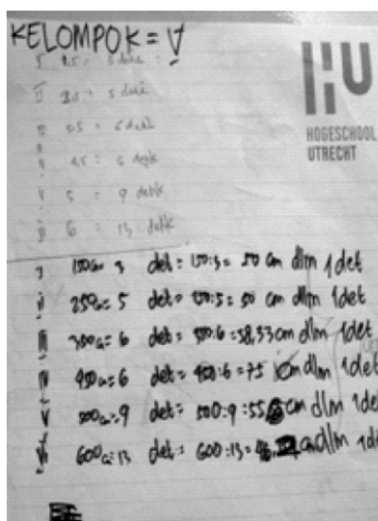 KELOMPOK = V
HU
HOGESCHOOL
UTRECHT
I 2.5 = 3 detik
II 3.5 = 5 detik
4.5 = 6 detik
5 = 9 detik
6 = 13 detik
I 150cm = 3 det = 150:3 = 50 cm dlm 1det
II 250cm = 5 det = 250:5 = 50 cm dlm 1det
III 350cm = 6 det = 350:6 = 58,33 cm dlm 1det
IV 450cm = 6 det = 450:6 = 75 cm dlm 1det
V 500cm = 9 det = 500:9 = 55 cm dlm 1det
VI 600cm = 13 det = 600:13 = cm dlm 1det